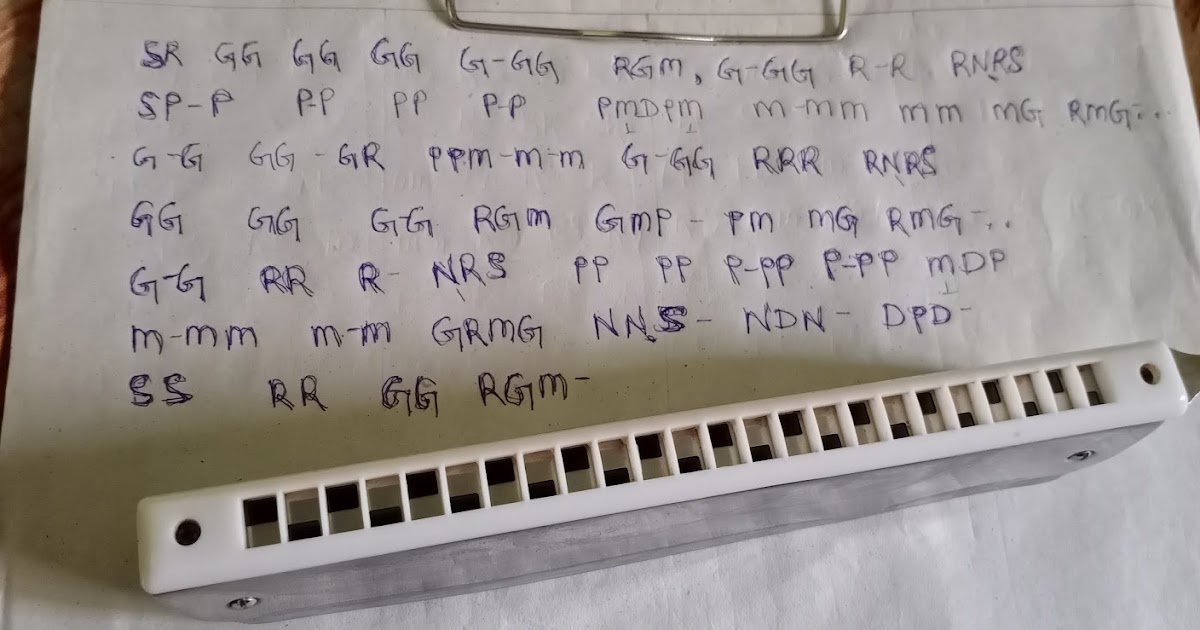 SR GG GG GG G-GG RGm, G-GG R-R RṆRS
SP-P P-P PP P-P PmDPm m-mm mm mG RmG-..
G-G GG-GR PPm-m-m G-GG RRR RṆRS
GG GG GG RGm GmP- Pm mG RmG-..
G-G RR R- ṆRS PP PP P-PP P-PP mDP
m-mm m-m GRmG NṆS- NDN- DPD-
SS RR GG RGm-